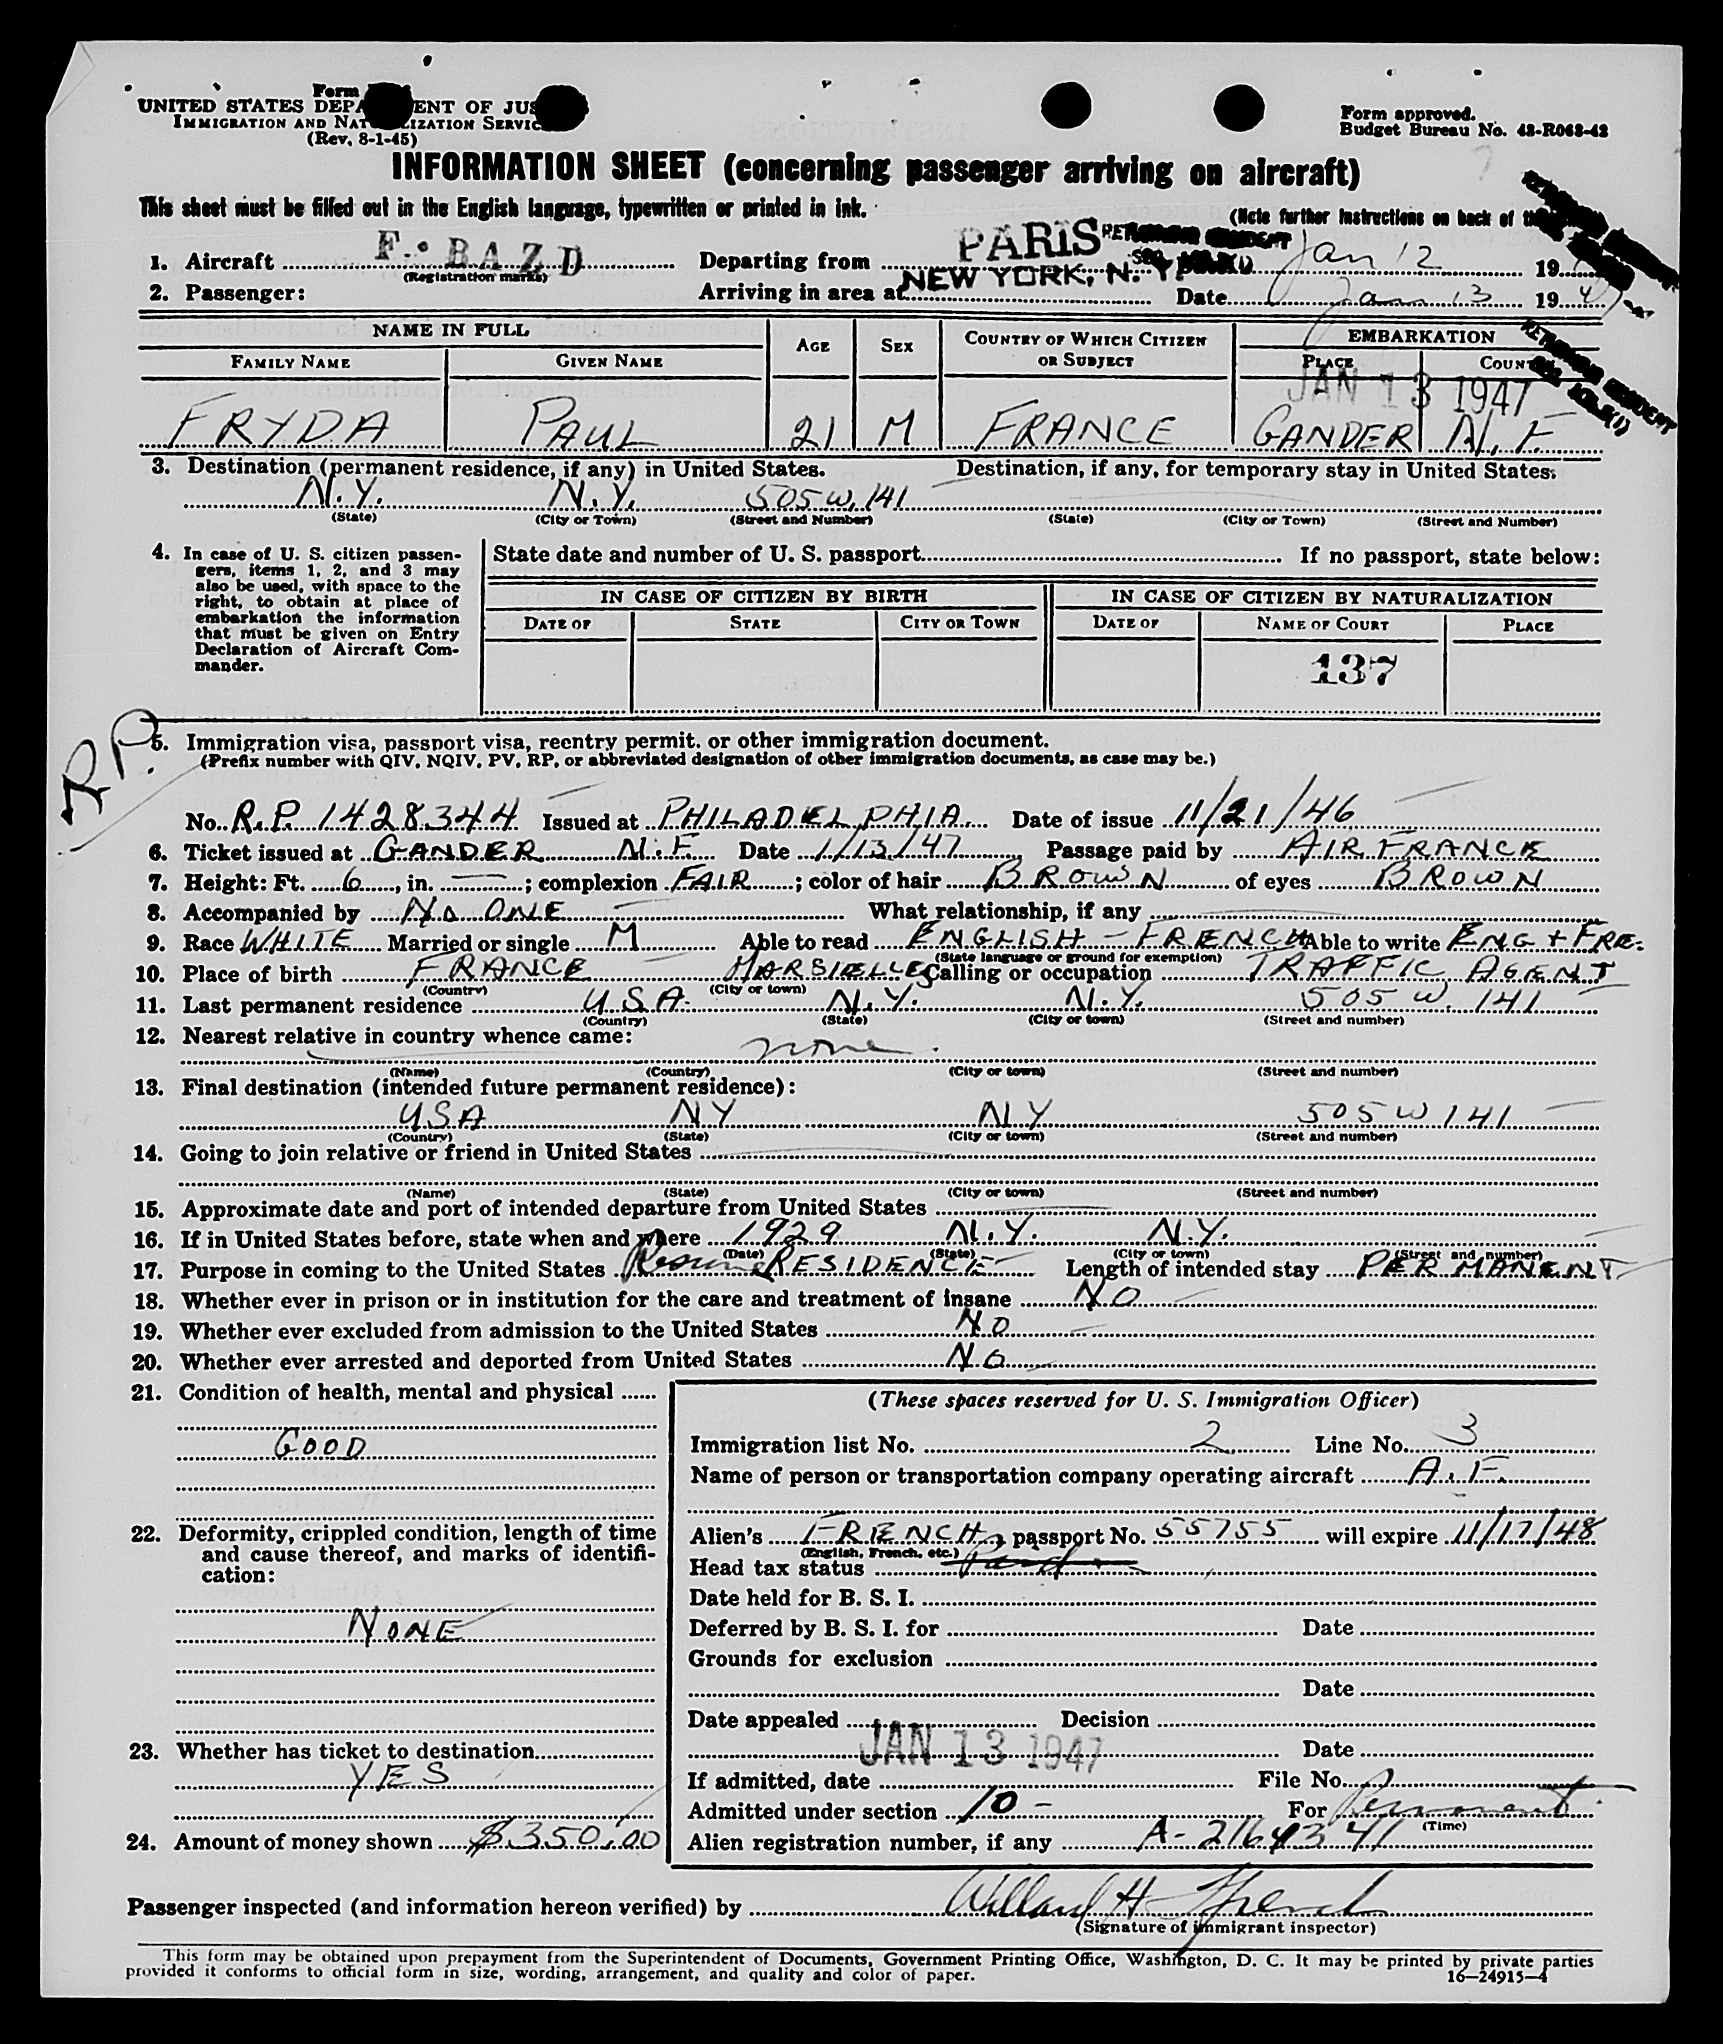 Form
UNITED STATES DEPA ENT OF JUS
IMMIGRATION AND NAT IZATION SERVIC
(Rev. 8-1-45)
Form approved.
Budget Bureau No. 43-R063-42
INFORMATION SHEET (concerning passenger arriving on aircraft)
This sheet must be filled out in the English language, typewritten or printed in ink.
(Note further instructions on back of
1. Aircraft F. BAZD (Registration marks) Departing from PARIS Jan 12 19
2. Passenger: Arriving in area at NEW YORK, N. Y. Date Jan 13 1947
NAME IN FULL AGE SEX COUNTRY OF WHICH CITIZEN OR SUBJECT EMBARKATION
FAMILY NAME GIVEN NAME PLACE COUNT
JAN 13 1947
FRYDA PAUL 21 M FRANCE GANDER N.F.
3. Destination (permanent residence, if any) in United States. Destination, if any, for temporary stay in United States:
N.Y. N.Y. 505 W. 141
(State) (City or Town) (Street and Number) (State) (City or Town) (Street and Number)
4. In case of U. S. citizen passengers, items 1, 2, and 3 may also be used, with space to the right, to obtain at place of embarkation the information that must be given on Entry Declaration of Aircraft Commander.
State date and number of U. S. passport If no passport, state below:
IN CASE OF CITIZEN BY BIRTH IN CASE OF CITIZEN BY NATURALIZATION
DATE OF STATE CITY OR TOWN DATE OF NAME OF COURT PLACE
137
R.P.
5. Immigration visa, passport visa, reentry permit, or other immigration document.
(Prefix number with QIV, NQIV, PV, RP, or abbreviated designation of other immigration documents, as case may be.)
No. R.P. 1428344 Issued at PHILADELPHIA Date of issue 11/21/46
6. Ticket issued at GANDER N.F. Date 1/13/47 Passage paid by AIR FRANCE
7. Height: Ft. 6, in. —; complexion FAIR; color of hair BROWN of eyes BROWN
8. Accompanied by NO ONE What relationship, if any
9. Race WHITE Married or single M Able to read ENGLISH - FRENCH Able to write ENG + FRE.
(State language or ground for exemption)
10. Place of birth FRANCE MARSIELLES Calling or occupation TRAFFIC AGENT
(Country) (City or town)
11. Last permanent residence USA. N.Y. N.Y. 505 W. 141
(Country) (State) (City or town) (Street and number)
12. Nearest relative in country whence came:
none.
(Name) (Country) (City or town) (Street and number)
13. Final destination (intended future permanent residence):
USA NY NY 505 W 141
(Country) (State) (City or town) (Street and number)
14. Going to join relative or friend in United States
(Name) (State) (City or town) (Street and number)
15. Approximate date and port of intended departure from United States
16. If in United States before, state when and where 1929 N.Y. N.Y.
(Date) (State) (City or town) (Street and number)
17. Purpose in coming to the United States Resume RESIDENCE Length of intended stay PERMANENT
18. Whether ever in prison or in institution for the care and treatment of insane NO
19. Whether ever excluded from admission to the United States NO
20. Whether ever arrested and deported from United States NO
21. Condition of health, mental and physical
GOOD
22. Deformity, crippled condition, length of time and cause thereof, and marks of identification:
NONE
23. Whether has ticket to destination
YES
24. Amount of money shown $350.00
(These spaces reserved for U. S. Immigration Officer)
Immigration list No. 2 Line No. 3
Name of person or transportation company operating aircraft A.F.
Alien's FRENCH passport No. 55755 will expire 11/17/48
(English, French, etc.)
Head tax status
Date held for B. S. I.
Deferred by B. S. I. for Date
Grounds for exclusion
Date
Date appealed Decision
JAN 13 1947 Date
If admitted, date File No.
Admitted under section 10 - For Permanent
(Time)
Alien registration number, if any
Passenger inspected (and information hereon verified) by Willard H.
(Signature of immigrant inspector)
This form may be obtained upon prepayment from the Superintendent of Documents, Government Printing Office, Washington, D. C. It may be printed by private parties
provided it conforms to official form in size, wording, arrangement, and quality and color of paper.
16—24915-4